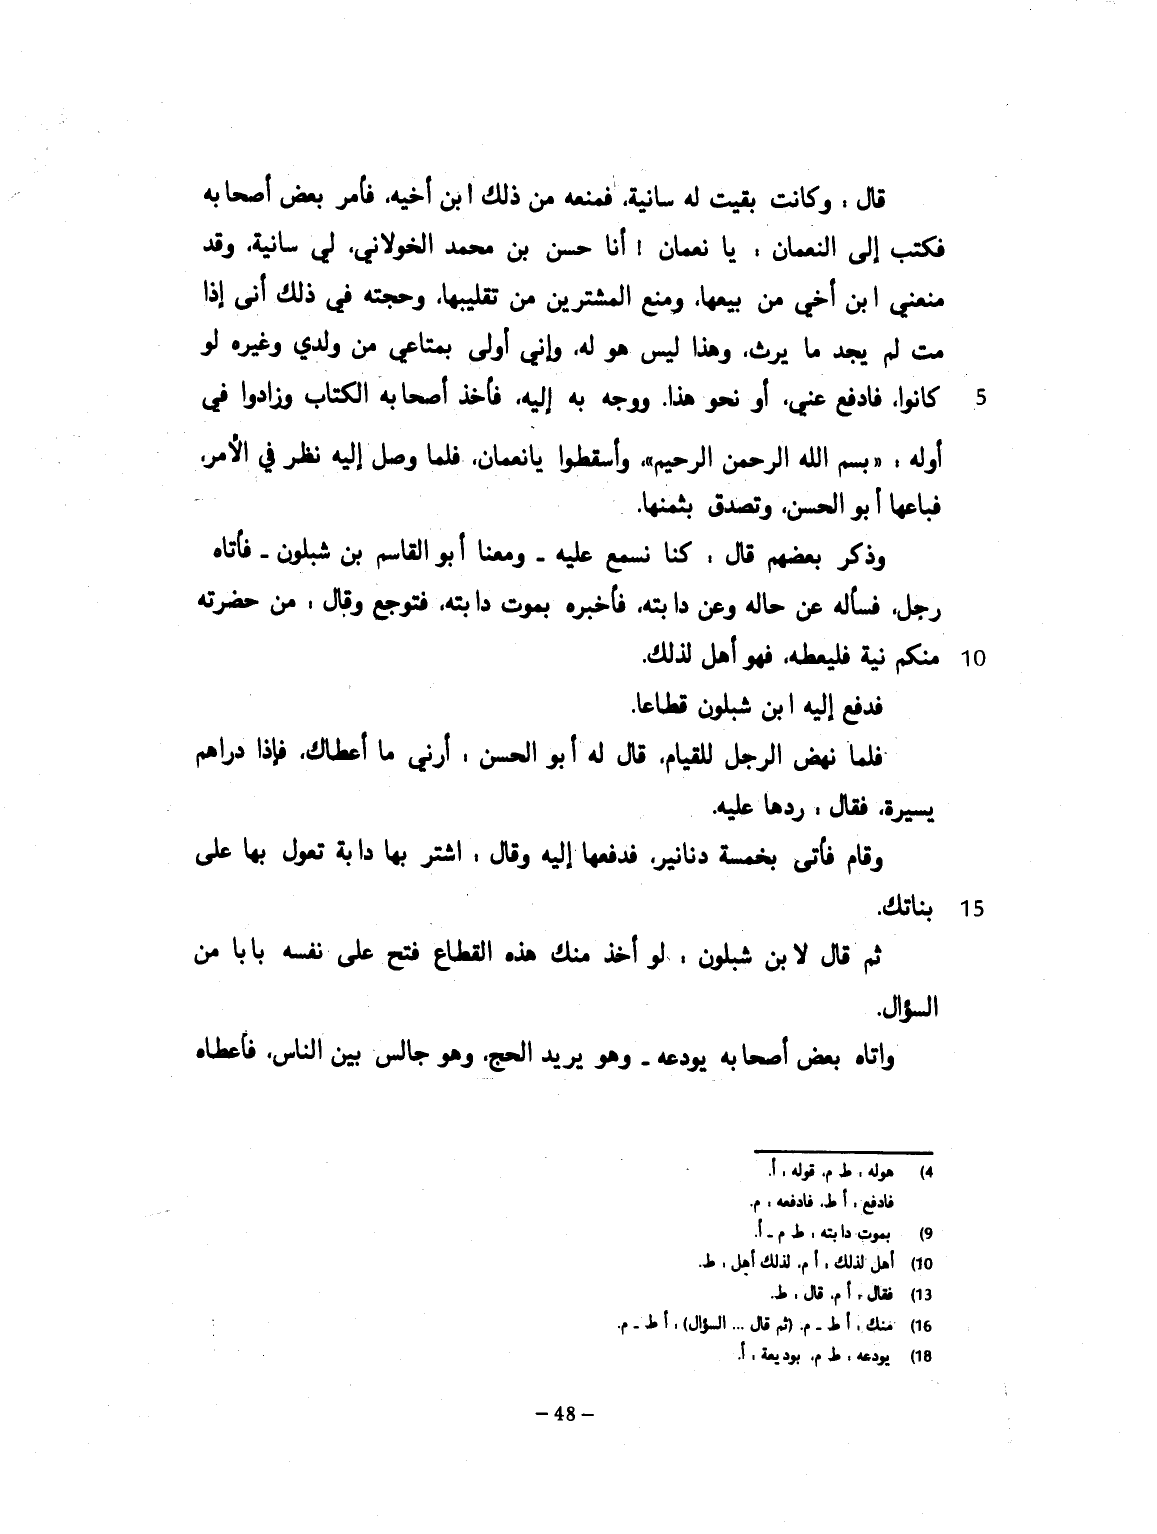 قال : وكانت بقيت له سانية، فمنعه من ذلك ابن أخيه، فأمر بعض أصحابه
فكتب إلى النعمان : يا نعمان ! أنا حسن بن محمد الخولاني، لي سانية، وقد
منعني ابن أخي من بيعها، ومنع المشترين من تقليبها، وحجته في ذلك أنى إذا
مت لم يجد ما يرث، وهذا ليس هو له، وإني أولى بمتاعي من ولدي وغيره لو
كانوا، فادفع عني، أو نحو هذا. ووجه به إليه، فأخذ أصحابه الكتاب وزادوا في 5
أوله : «بسم الله الرحمن الرحيم»، وأسقطوا يانعمان، فلما وصل إليه نظر في الأمر،
فباعها أبو الحسن، وتصدق بثمنها.
وذكر بعضهم قال : كنا نسمع عليه ـ ومعنا أبو القاسم بن شبلون ـ فأتاه
رجل، فسأله عن حاله وعن دابته، فأخبره بموت دابته، فتوجع وقال : من حضرته
منكم نية فليعطه، فهو أهل لذلك. 10
فدفع إليه ابن شبلون قطاعا.
فلما نهض الرجل للقيام، قال له أبو الحسن : أرني ما أعطاك، فإذا دراهم
يسيرة، فقال : ردها عليه.
وقام فأتى بخمسة دنانير، فدفعها إليه وقال : اشتر بها دابة تعول بها على
بناتك. 15
ثم قال لابن شبلون : لو أخذ منك هذه القطاع فتح على نفسه بابا من
السؤال.
واتاه بعض أصحابه يودعه ـ وهو يريد الحج، وهو جالس بين الناس، فأعطاه
4) هوله : ط م، قوله : أ.
فادفع : أ ط، فادفعه : م.
9) بموت دابته : ط م ـ أ.
10) أهل لذلك : أ م، لذلك أهل : ط.
13) فقال : أ م، قال : ط.
16) منك : أ ط ـ م. (ثم قال ... السؤال) : أ ط ـ م.
18) يودعه : ط م، بوديعة : أ.
– 48 –